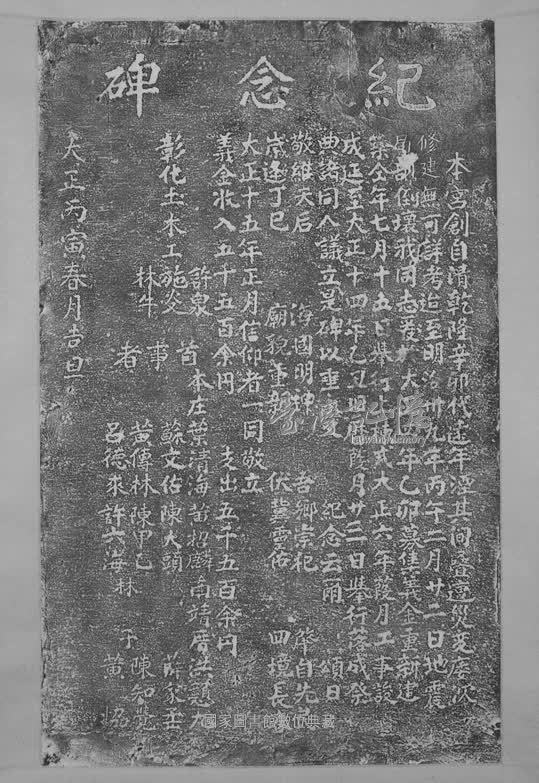 紀念碑
本宮創自清乾隆辛卯代遠年湮其間叠遭災变屢次
修建無可詳考迨至明治卅九年丙午二月廿二日地震
倒壞我同志爰 大正 年乙卯募集義金重新建
築仝年七月十五日舉行 式大正六年葭月工事設
成延至大正十四年乙丑旧曆葭月廿三日舉行落成祭
典諸同人議立是碑以垂 紀念云爾 頌曰
敬維天后 海國明 吾鄉崇祀 肇自先
歲逢丁巳 廟貌重新 伏冀靈佑 四境長
大正十五年正月信仰者一同敬立
義金收入五千五百余円 支出五千五百余円
許泉 首 本庄葉清海 黃招麟 南靖厝
彰化土木工 施炎 事 蘇文佑 陳大頭
林牛 者 黃傳林 陳甲乙 陳知
呂德來 許六海 林 黃
大正丙寅春月吉旦
國家圖書館數位典藏